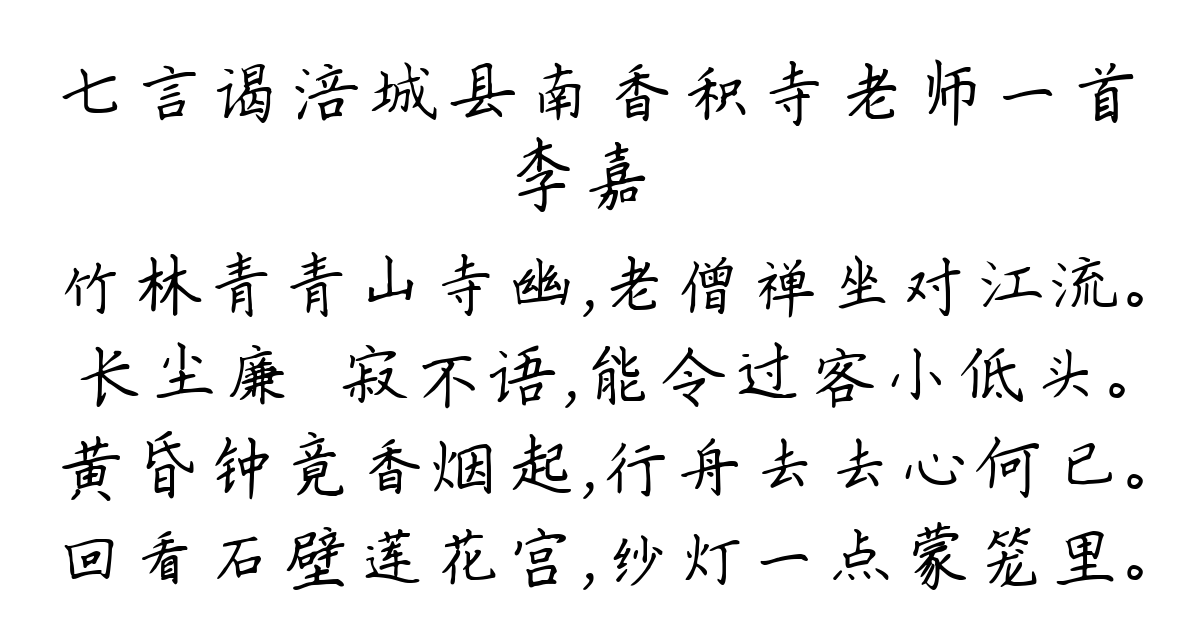 七言谒涪城县南香积寺老师一首
李嘉
竹林青青山寺幽,老僧禅坐对江流。
长尘廉 寂不语,能令过客小低头。
黄昏钟竟香烟起,行舟去去心何已。
回看石壁莲花宫,纱灯一点蒙笼里。